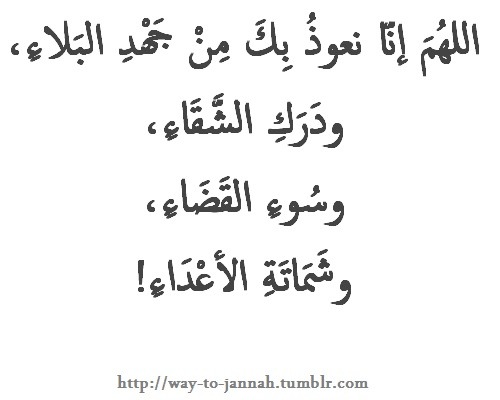 اللهُمَ إنّا نعوذُ بِكَ مِنْ جَهْدِ البَلاءِ،
ودَرَكِ الشَّقَاءِ،
وسُوءِ القَضَاءِ،
وشَمَاتَةِ الأعْدَاءِ!
http://way-to-jannah.tumblr.com